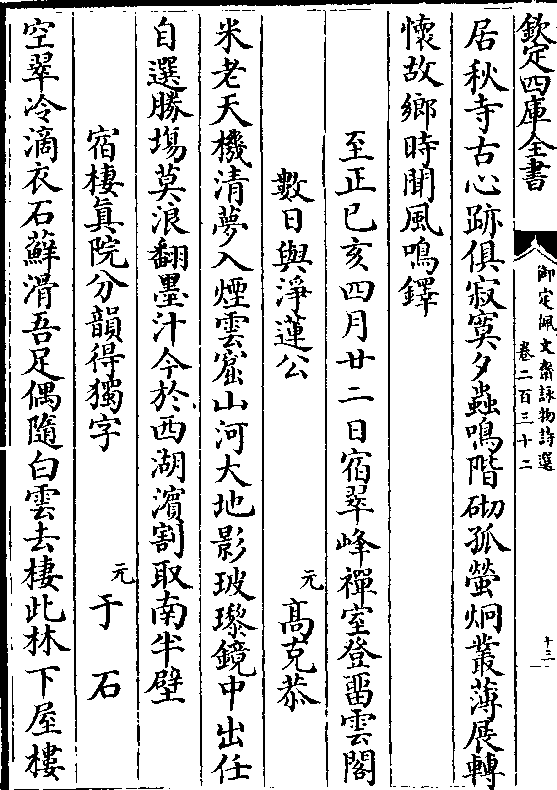 欽定四庫全書
御定佩文齋詠物詩選
卷二百三十二
十三
居秋寺古心跡俱寂寞夕蟲鳴階砌孤螢炯叢薄展轉
懷故鄉時聞風鳴鐸
至正己亥四月廿二日宿翠峰禪室登畱雲閣
數日與淨蓮公
元
高克恭
米老天機清夢入煙雲窟山河大地影玻瓈鏡中出任
自選勝塲莫浪翻墨汁今於西湖濱割取南半壁
宿棲真院分韻得獨字
元
于石
空翠冷滴衣石蘚滑吾足偶隨白雲去棲此林下屋樓